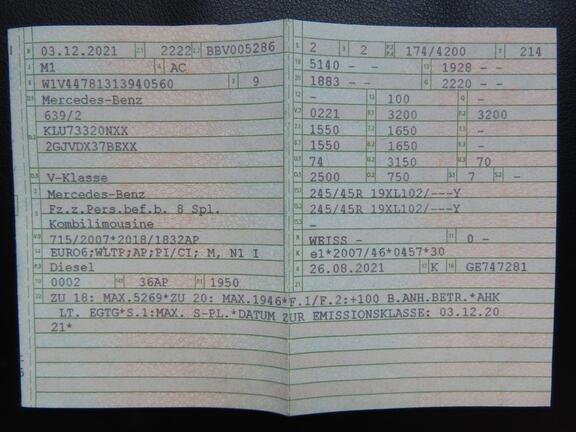 03.12.2021 2222 BBV005286
M1 AC
W1V44781313940560 9
Mercedes-Benz
639/2
KLU73320NXX
2GJVDX37BEXX
V-Klasse
Mercedes-Benz
Fz.z.Pers.bef.b. 8 Spl.
Kombilimousine
715/2007*2018/1832AP
EURO6;WLTP;AP;PI/CI; M, N1 I
Diesel
0002 36AP 1950
2 2 174/4200 214
5140 - - 1928 - -
1883 - - 2220 - -
- 100 -
0221 3200 3200
1550 1650 -
1550 1650 -
74 3150 70
2500 750 7 -
245/45R 19XL102/---Y
245/45R 19XL102/---Y
-
WEISS - 0 -
e1*2007/46*0457*30
26.08.2021 K GE747281
ZU 18: MAX.5269*ZU 20: MAX.1946*F.1/F.2:+100 B.ANH.BETR.*AHK
LT. EGTG*S.1:MAX. S-PL.*DATUM ZUR EMISSIONSKLASSE: 03.12.20
21*